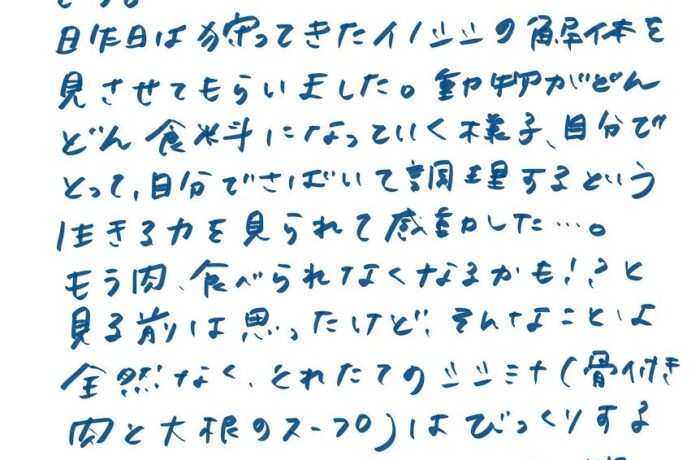 とう。
日昨日は狩ってきたイノシシの解体を
見させてもらいました。動物がどん
どん食料になっていく様子、自分で
とって、自分でさばいて調理するという
生きる力を見られて感動した…。
もう肉、食べられなくなるかも!?と
見る前は思ったけど、そんなことは
全然なく、とれたてのシシミナ(骨付き
肉と大根のスープ)はびっくりする